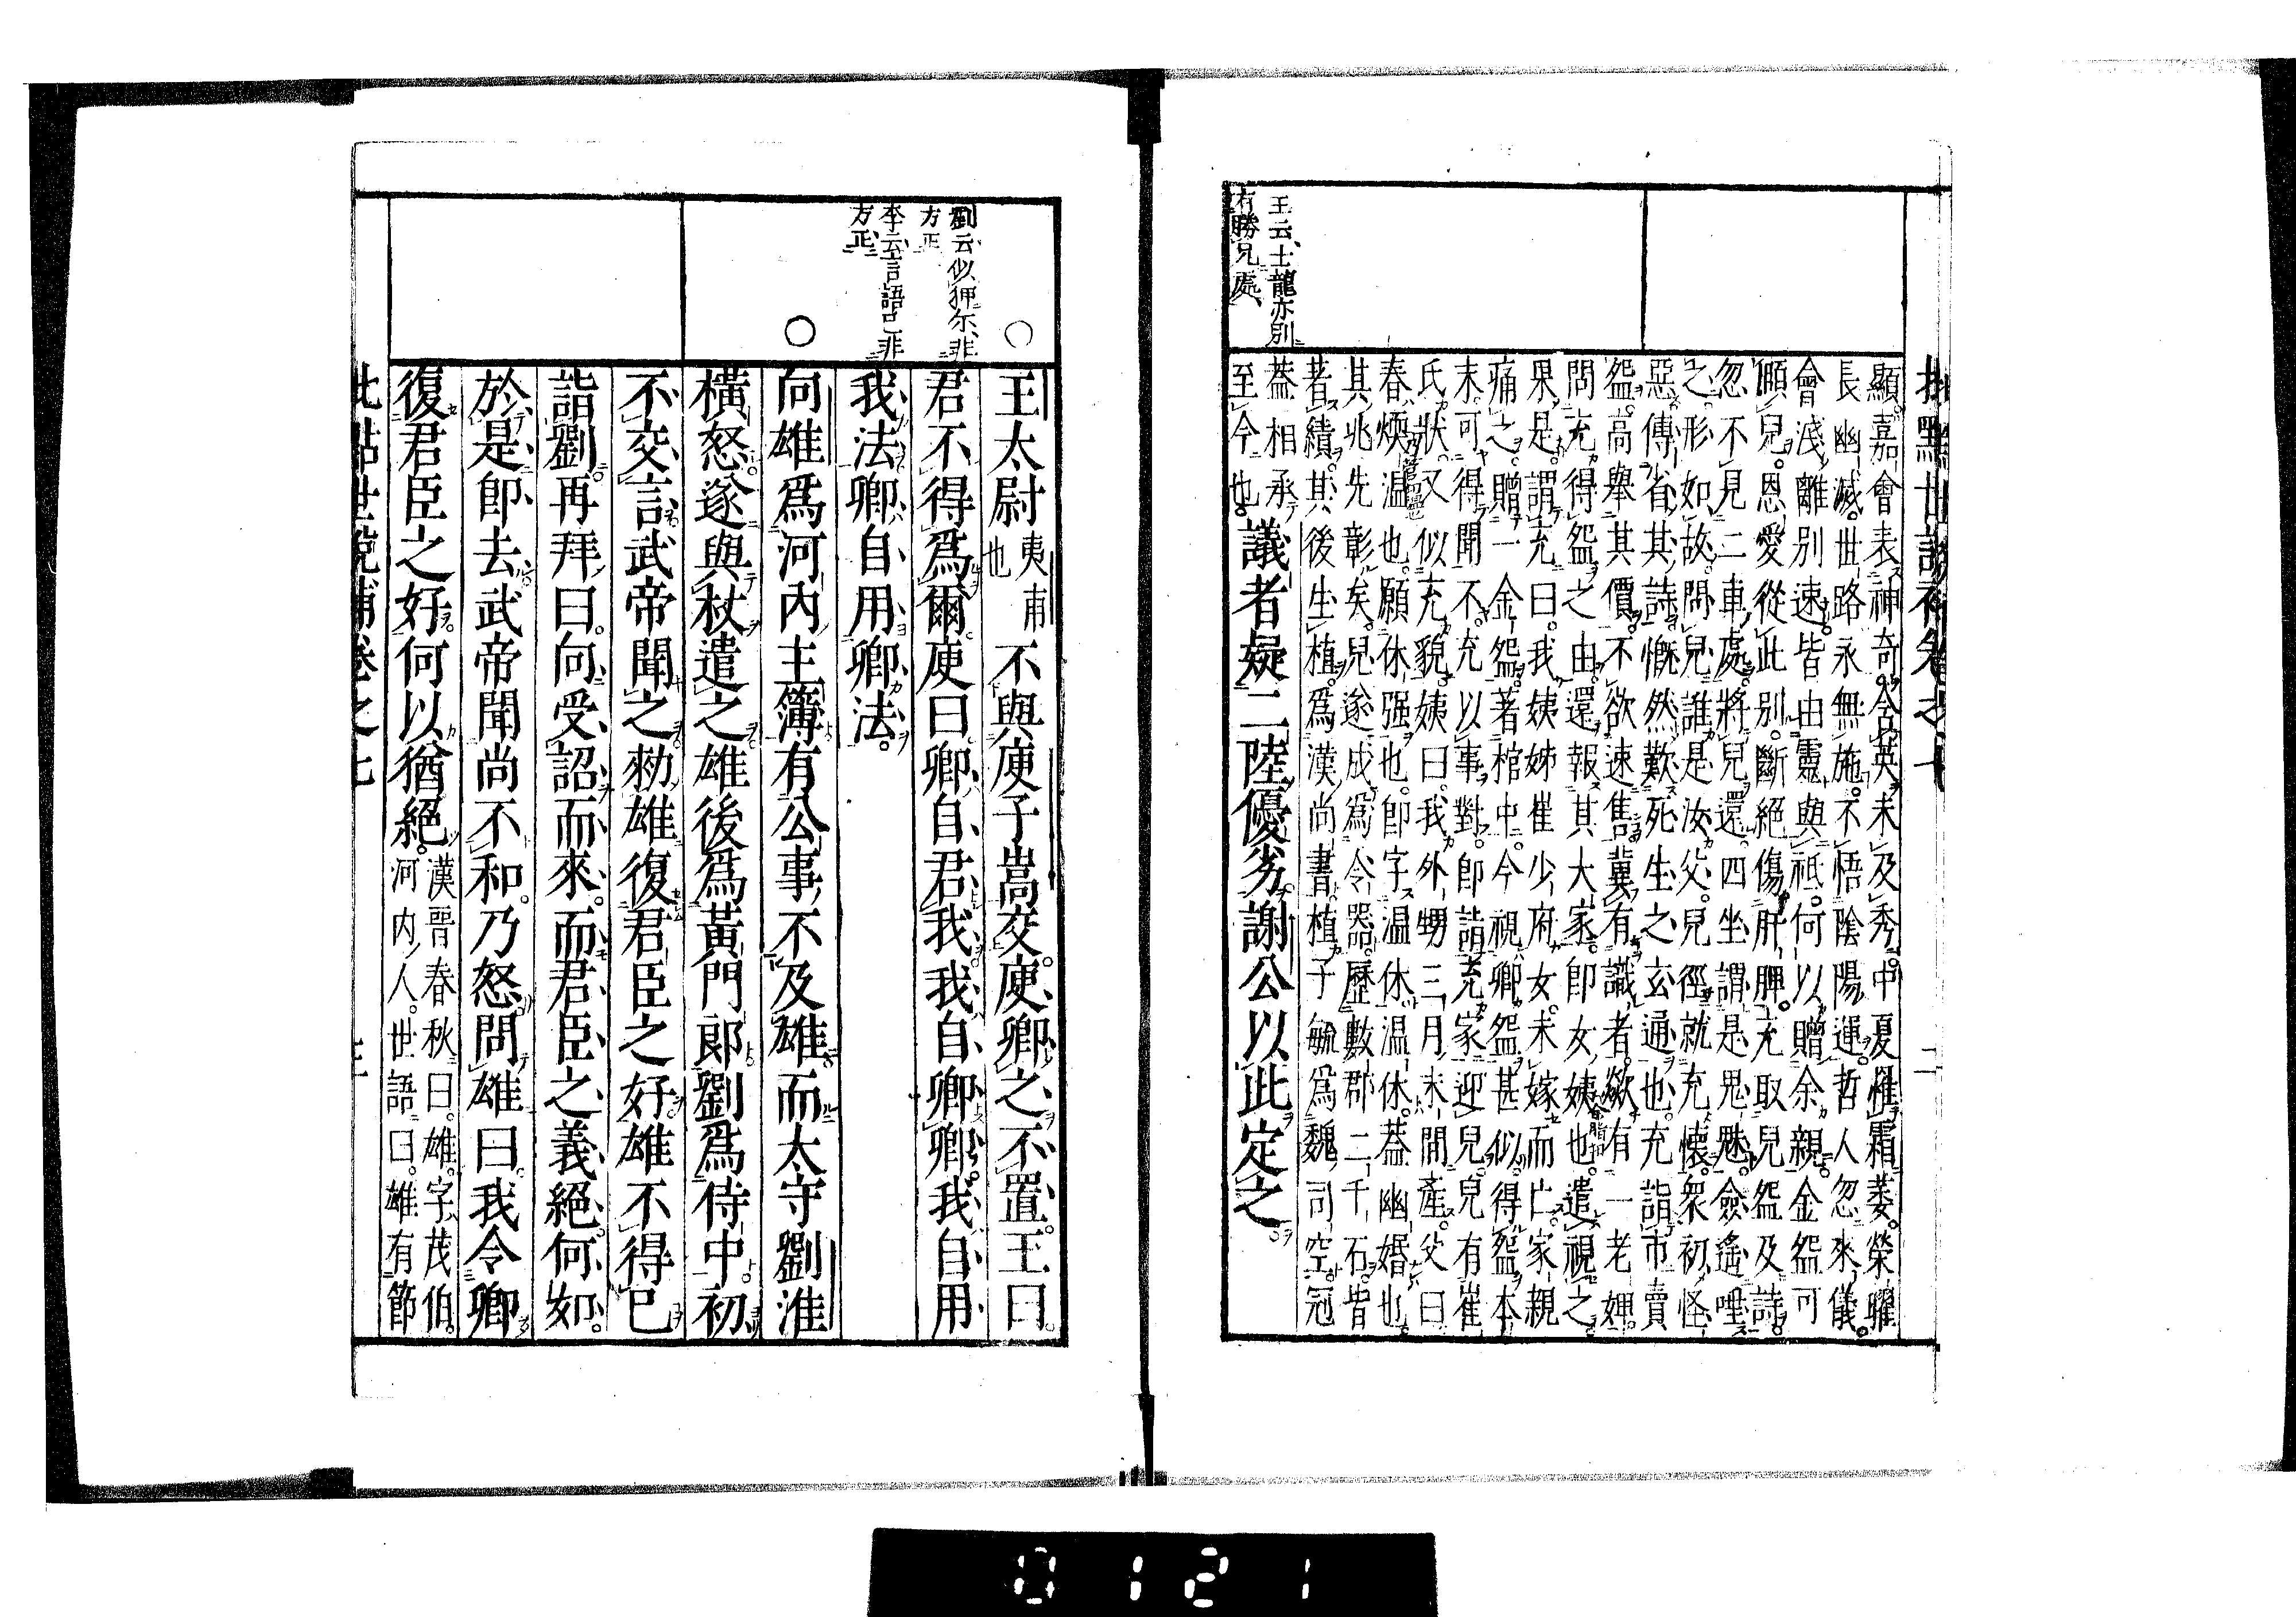 批點世說補卷之七
二
王云士龍亦別
有勝兄處
顯嘉會表神奇含英未及秀中夏罹霜萎榮曜
長幽滅世路永無施不悟陰陽運哲人忽來儀
會淺離別速皆由靈與祇何以贈余親金鋺可
頤兒恩愛從此別斷絕傷肝脾充取兒鋺及詩
忽不見二車處將兒還四坐謂是鬼魅僉遙唾
之形如故問兒誰是汝父兒徑就充懷衆初怪
惡傳省其詩慨然歎死生之玄通也充詣市賣
鋺高舉其價不欲速售冀有識者欻有一老婢
問充得鋺之由還報其大家即女姨也遣視之
果是謂充曰我姨姊崔少府女未嫁而亡家親
痛之贈一金鋺著棺中今視卿鋺甚似得鋺本
末可得聞不充以事對即詣充家迎兒兒有崔
氏狀又似充貌姨曰我外甥三月末間產父曰
春煗温也願休强也即字温休温休蓋幽婚也
其兆先彰矣兒遂成爲令器歷數郡二千石皆
著績其後生植爲漢尚書植子毓爲魏司空冠
蓋相承
至今也議者疑二陸優劣謝公以此定之
劉云似狎尔非
方正
李云言語非
方正
王太尉夷甫也不與庾子嵩交庾卿之不置王曰
君不得爲爾庾曰卿自君我我自卿卿我自用
我法卿自用卿法
向雄爲河內主簿有公事不及雄而太守劉淮
橫怒遂與杖遣之雄後爲黃門郎劉爲侍中初
不交言武帝聞之勑雄復君臣之好雄不得已
詣劉再拜曰向受詔而來而君臣之義絕何如
於是即去武帝聞尚不和乃怒問雄曰我令卿
復君臣之好何以猶絕漢晉春秋曰雄字茂伯
河內人世語曰雄有節
批點世說補卷之七
三
0121